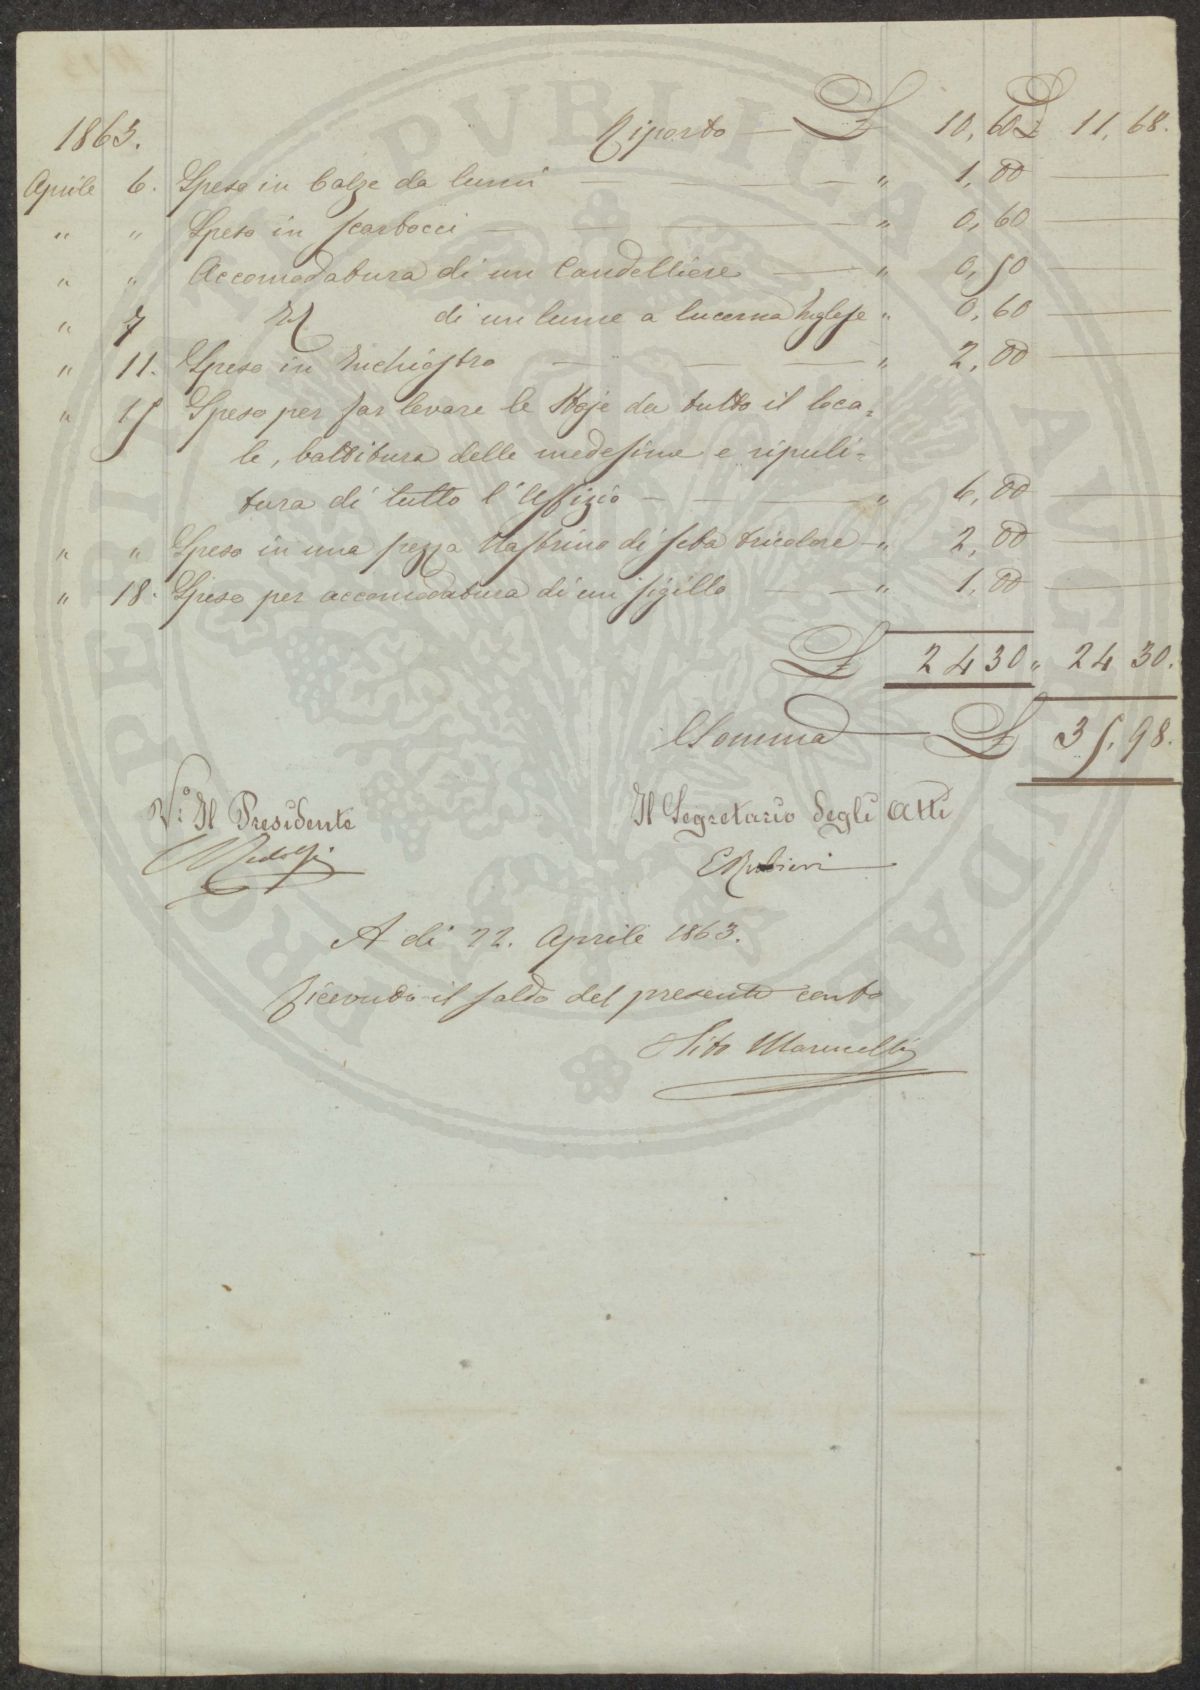 1863. Riporto — £ 10,60 £ 11,68.
Aprile 6. Speso in Calze da lumi — " 1,00 —
" " Speso in scartocci — " 0,60 —
" " Accomodatura di un Candelliere — " 0,50 —
" 7 Id di un lume a lucerna Inglese " 0,60 —
" 11. Speso in Inchiostro — " 2,00 —
" 15 Speso per far levare le Stoje da tutto il loca=
le, battitura delle medesime e ripuli=
tura di tutto l'Uffizio — " 6,00 —
" " Speso in una pezza Nastrino di seta tricolore — " 2,00 —
" 18. Speso per accomodatura di un sigillo — " 1,00 —
£ 24 30 " 24 30.
Somma — £ 35,98.
V.° Il Presidente
Il Segretario degli Atti
Ridolfi
E Rubieri
A di 22. Aprile 1863.
Ricevuto il saldo del presente conto
Tito Marucelli
PROPERTÀ PVBLICAE AVGENDAE